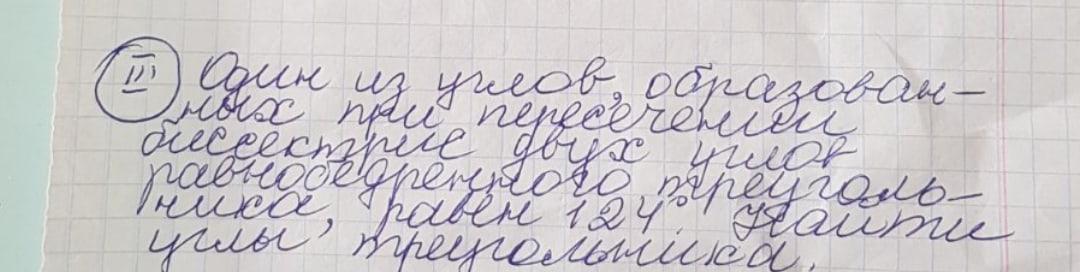 III Один из углов, образован-
ных при пересечении
биссектрис двух углов
равнобедренного треуголь-
ника, равен 124°. Найти
углы треугольника.